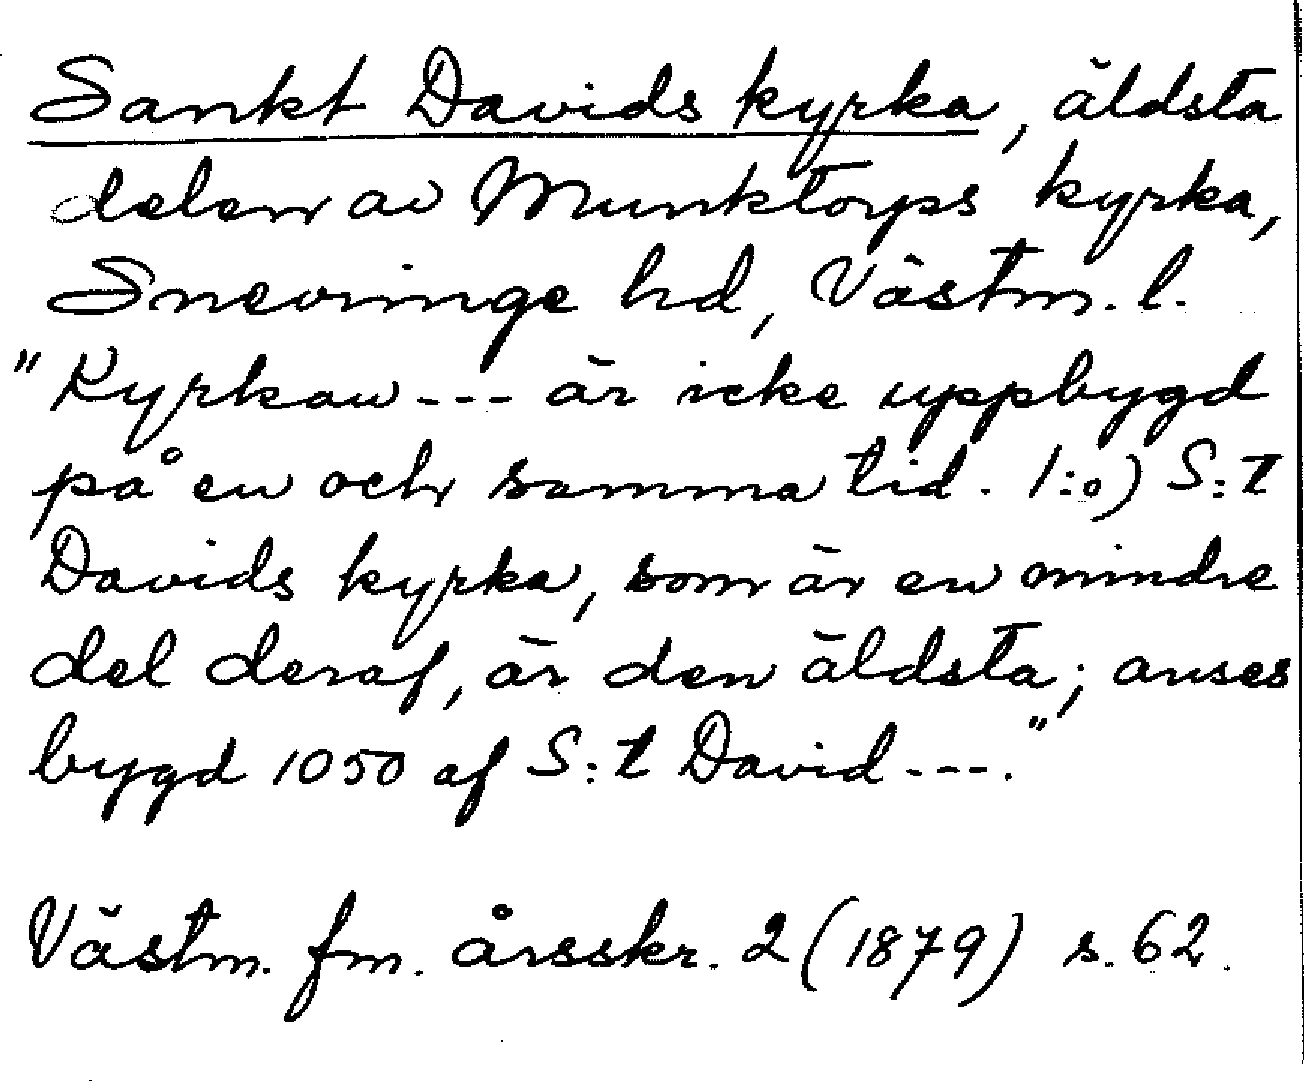 Sankt Davids kyrka, äldsta
delen av Munktorps kyrka,
Snevringe hd, Västm. l.
"Kyrkan --- är icke uppbygd
på en och samma tid. 1:o) S:t
Davids kyrka, som är en mindre
del deraf, är den äldsta; anses
bygd 1050 af S:t David ---."
Västm. fm. årsskr. 2 (1879) s. 62.